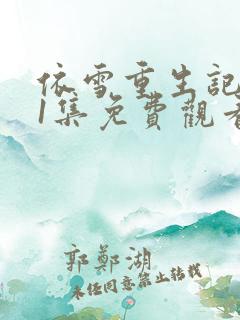 依雪重生記
1集免費觀看
郭鄭湖
未经同意禁止转载